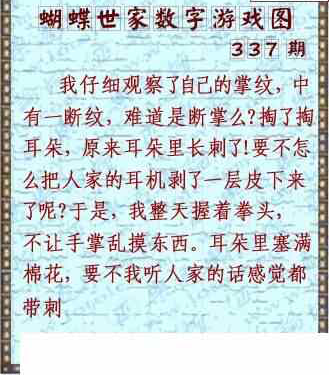 蝴蝶世家数字游戏图
337 期
我仔细观察了自己的掌纹，中
有一断纹，难道是断掌么?掏了掏
耳朵，原来耳朵里长刺了!要不怎
么把人家的耳机剥了一层皮下来
了呢?于是，我整天握着拳头，
不让手掌乱摸东西。耳朵里塞满
棉花，要不我听人家的话感觉都
带刺